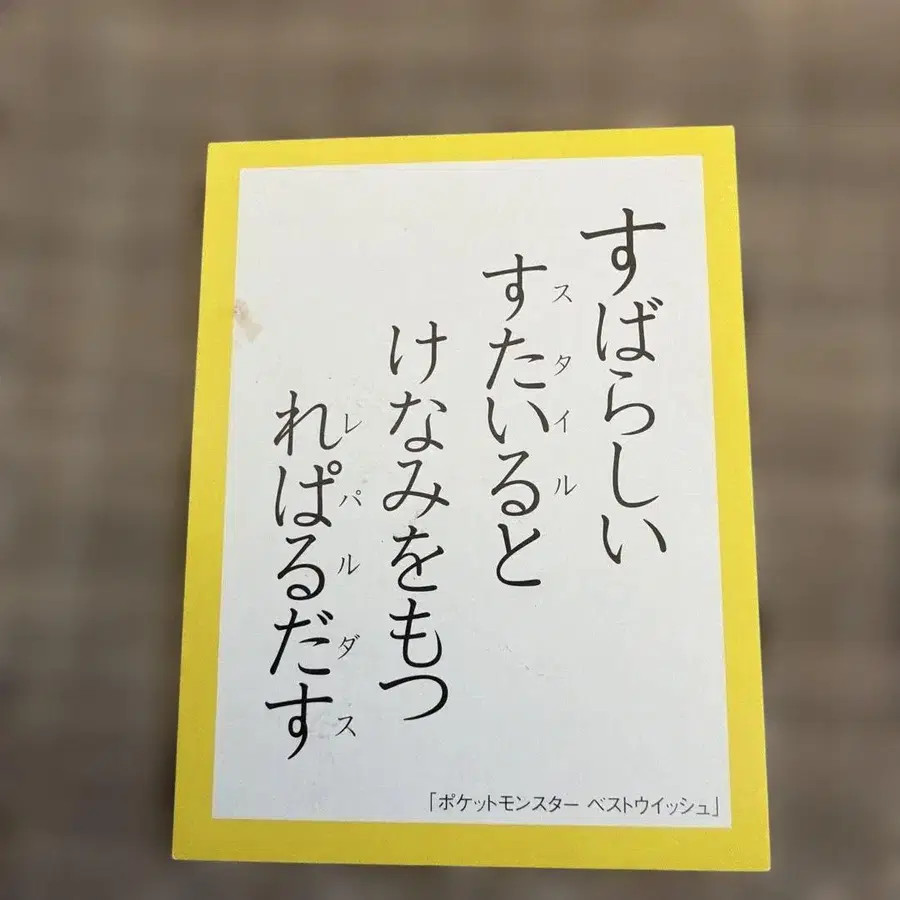 すばらしい
すたいると
スタイル
けなみをもつ
れぱるだす
レパルダス
「ポケットモンスター ベストウイッシュ」